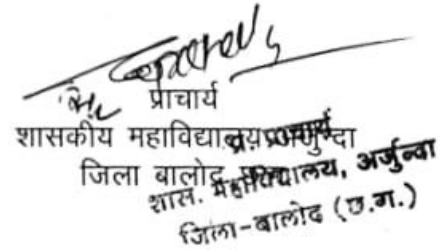 प्राचार्य
शासकीय महाविद्यालय अर्जुन्दा
जिला बालोद
प्राचार्य
शास. महाविद्यालय, अर्जुन्दा
जिला-बालोद (छ.ग.)